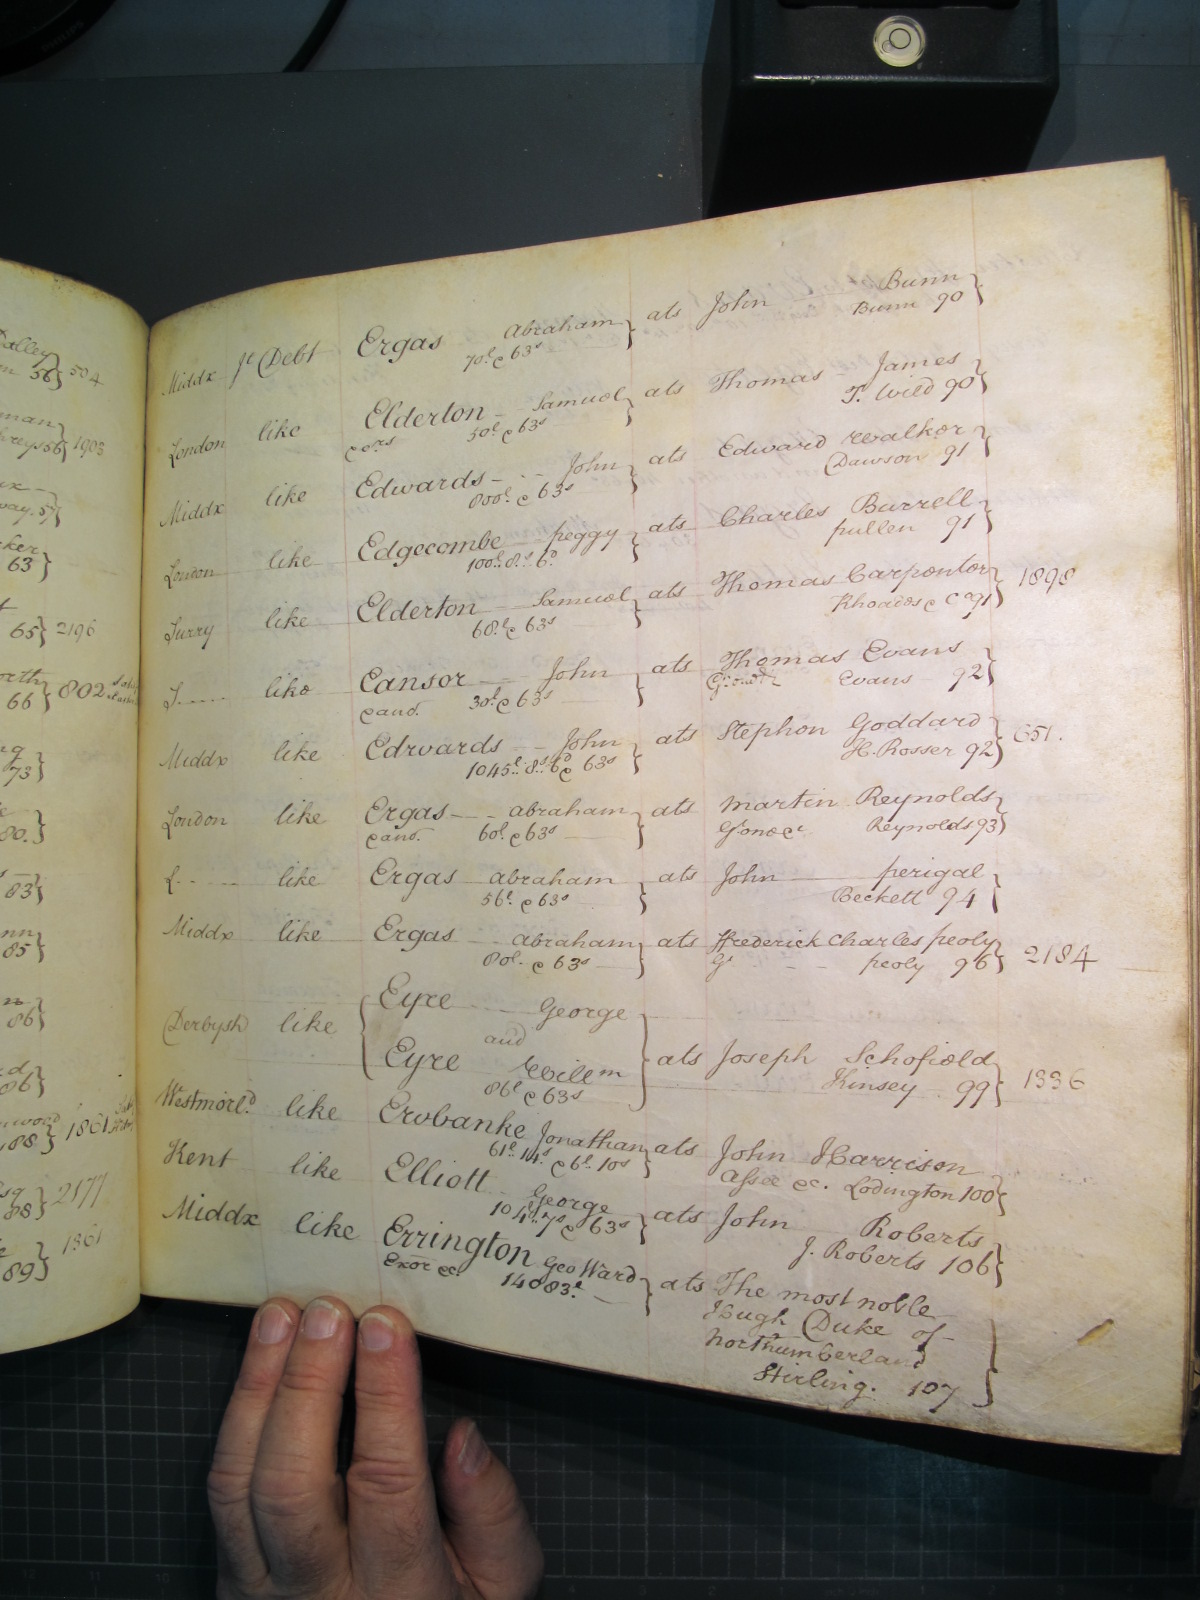 Middx Jt Debt Ergas Abraham } ats John Bunn }
70l. & 63s Bunn 90
London like Elderton Samuel } ats Thomas James }
50l. & 63s T. Wild 90
Middx like Edwards John } ats Edward Walker }
800l. & 63s Dawson 91
London like Edgecombe peggy } ats Charles Burrell }
100l. 8s. 6d. pullen 91
Surry like Elderton Samuel } ats Thomas Carpenter } 1898
68l. & 63s Rhoades & Co 91
S..... like Eansor John } ats Thomas Evans }
30l. & 63s Evans 92
Middx like Edwards John } ats Stephon Goddard } 651.
1045l. 8s. 6d & 63s H. Rosser 92
London like Ergas abraham } ats martin Reynolds }
60l. & 63s Reynolds 93
L..... like Ergas abraham } ats John perigal }
56l. & 63s Beckett 94
Middx like Ergas abraham } ats Frederick Charles peoly } 2184
80l. & 63s peoly 96
Derbysh like { Eyre George
and
Eyre Willm } ats Joseph Schofield } 1336
86l & 63s Kinsey 99
Westmorld. like Ewbanke Jonathan } ats John Harrison
61l. 14s. & 6l. 10s Assee &c. Lodington 100 }
Kent like Elliott George } ats John Roberts }
104l. 7s & 63s J. Roberts 106
Middx like Errington Geo Ward } ats The most noble
Exor &c. 14083l. Hugh Duke of
Northumberland
Stirling. 107 }
504
1903
63
65} 2196
66} 802
73}
80.}
83}
85}
86}
86}
88} 1861
88} 2177
89} 1361